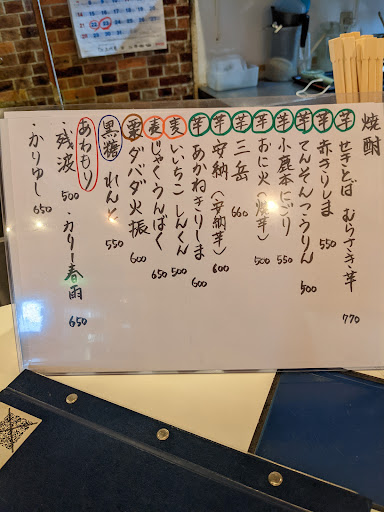 焼酎
芋 せきとば むらさき芋 770
芋 赤きりしま 550
芋 てんそんこうりん 500
芋 小鹿本にごり 550
芋 おに火(焼芋) 500
芋 三岳 660
芋 安納(安納芋) 600
芋 あかねきりしま 600
麦 いいちこ しんくん 500
麦 じゃくうんばく 650
栗 ダバダ火振 600
黒糖 れんと 550
あわもり
・残波 500 ・カリー春雨 650
・かりゆし 650